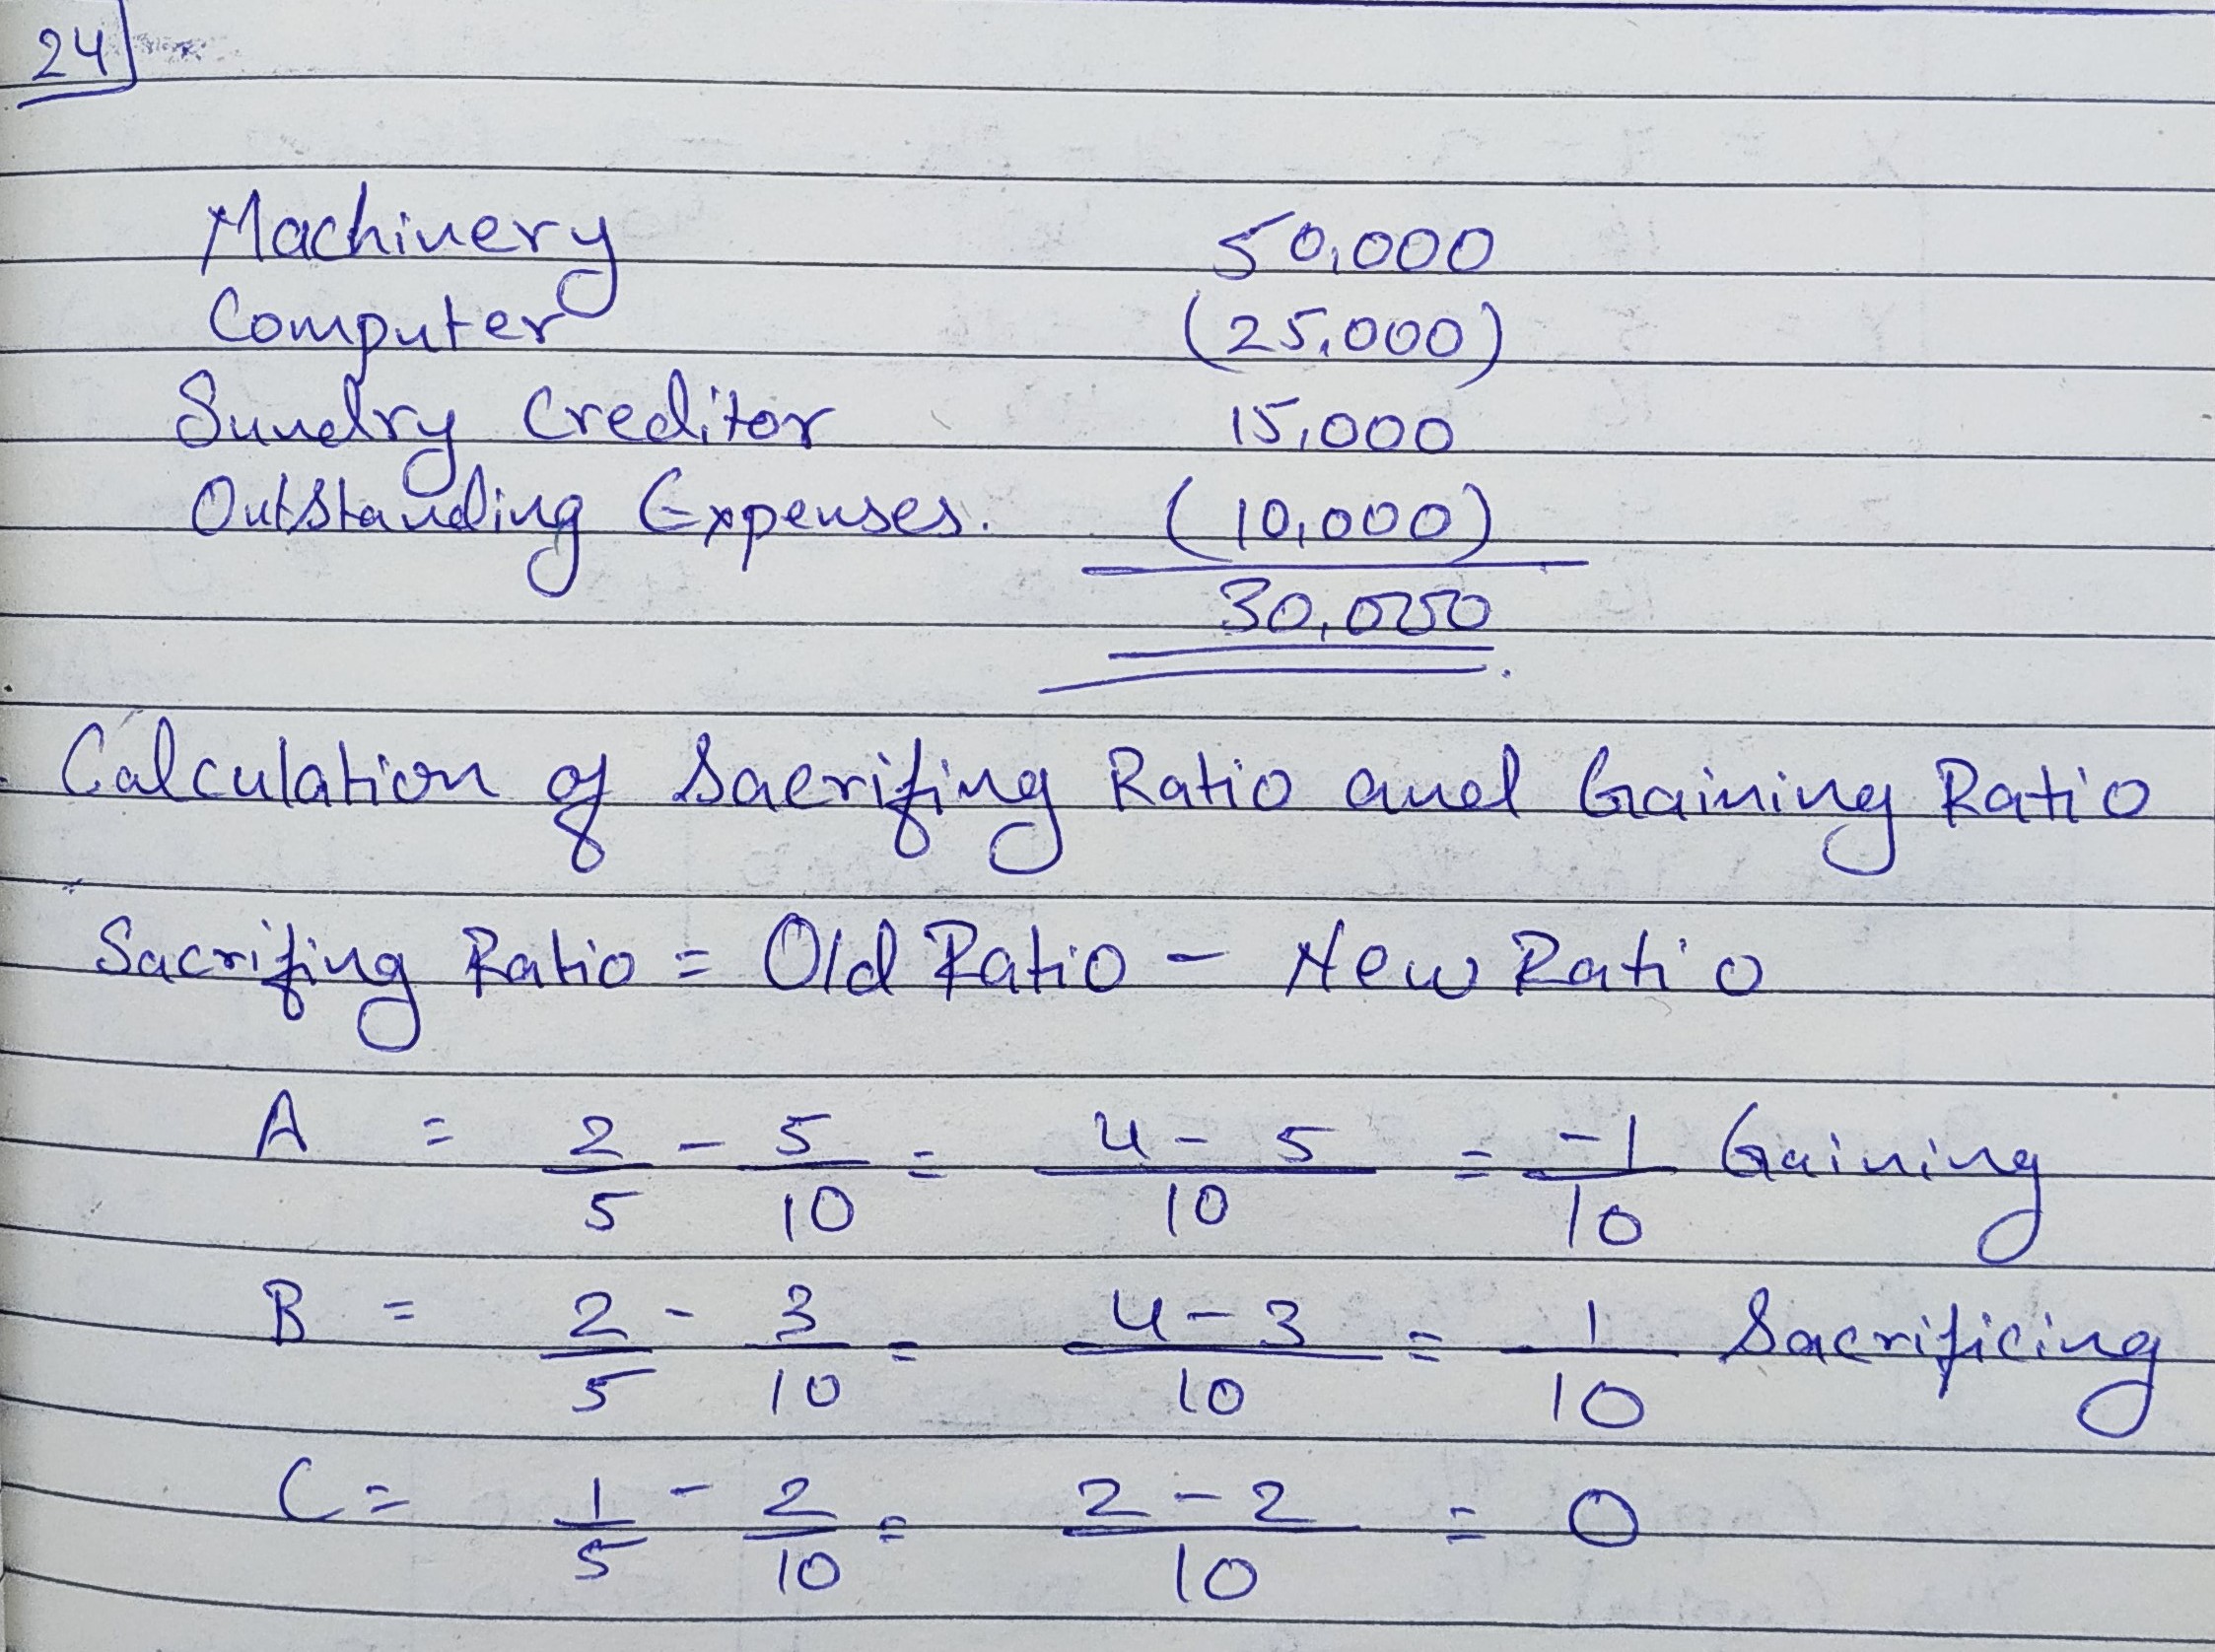 24
Machinery 50,000
Computer (25,000)
Sundry Creditor 15,000
Outstanding Expenses. (10,000)
30,000
Calculation of Sacrifing Ratio and Gaining Ratio
Sacrifing Ratio = Old Ratio - New Ratio
A = 2/5 - 5/10 = 4-5/10 = -1/10 Gaining
B = 2/5 - 3/10 = 4-3/10 = 1/10 Sacrificing
C = 1/5 - 2/10 = 2-2/10 = 0